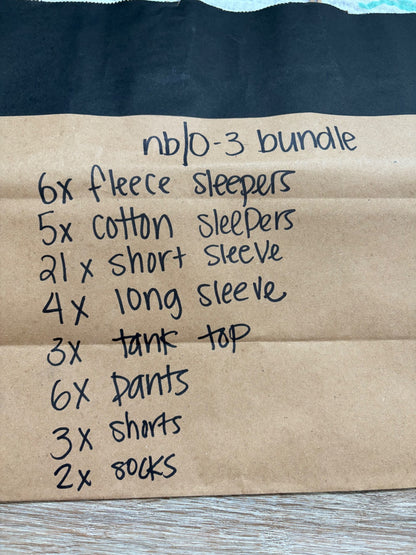 nb/0-3 bundle
6x fleece sleepers
5x cotton sleepers
21x short sleeve
4x long sleeve
3x tank top
6x pants
3x shorts
2x socks